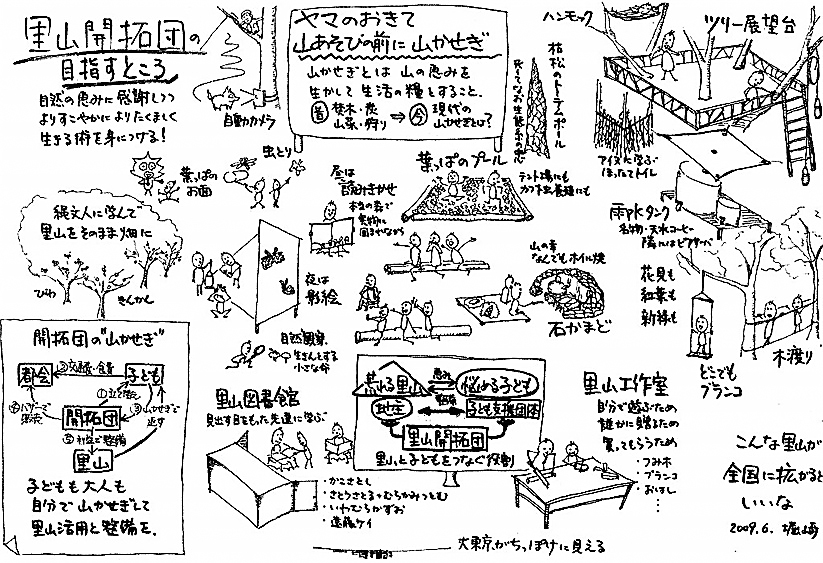 里山開拓団の
目指すところ
自然の恵みに感謝しつつ
よりすこやかによりたくましく
生きる術を身につける!
自動カメラ
ヤマのおきて
山あそびの前に山かせぎ
山かせぎとは 山の恵みを
生かして生活の糧とすること。
昔 焚木・炭
山菜・狩り
⇒
今 現代の
山かせぎとは?
枯松のトーテムポール
ハンモック
ツリー展望台
アイヌに学ぶ
ほったてトイレ
雨水タンク
名物・天水コーヒー
隣にはビオトーパ
葉っぱの
お面
虫とり
昼は
読みきかせ
本物の森で
実物に
囲まれながら
夜は
影絵
葉っぱのプール
テント場にも
カブト虫養殖にも
縄文人に学んで
里山をそのまま畑に
びわ
きんかん
山の幸
なんでもホイル焼
石かまど
花見も
紅葉も
新緑も
どこでも
ブランコ
木渡り
自然観察
小さな命
開拓団の"山かせぎ"
都会
子ども
開拓団
里山
子どもも大人も
自分で山かせぎして
里山活用と整備を。
里山図書館
見出す目をもった先達に学ぶ
・かこさとし
・さとうさとる+むらかみつとむ
・いわむらかずお
・遠藤ケイ
荒れる里山
恵み
悩める子ども
地主
子ども支援団体
里山開拓団
里山と子どもをつなぐ役割
里山工作室
自分で遊ぶため
誰かに贈るため
買ってもらうため
・つみ木
・ブランコ
・おはし
⋮
こんな里山が
全国に拡がると
いいな
2009.6. 堀崎
大東京がちっぽけに見える